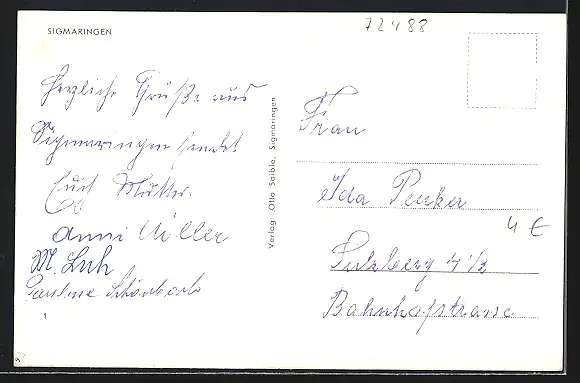 72488
SIGMARINGEN
Herzliche Grüße aus
Sigmaringen sendet
Euch Mutter.
Anni Müller
M. Luh
Pauline
1
Verlag: Otto Saible, Sigmaringen
Frau
Ida Penker
4 €
Sulzberg 7 1/2
Bahnhofstrasse